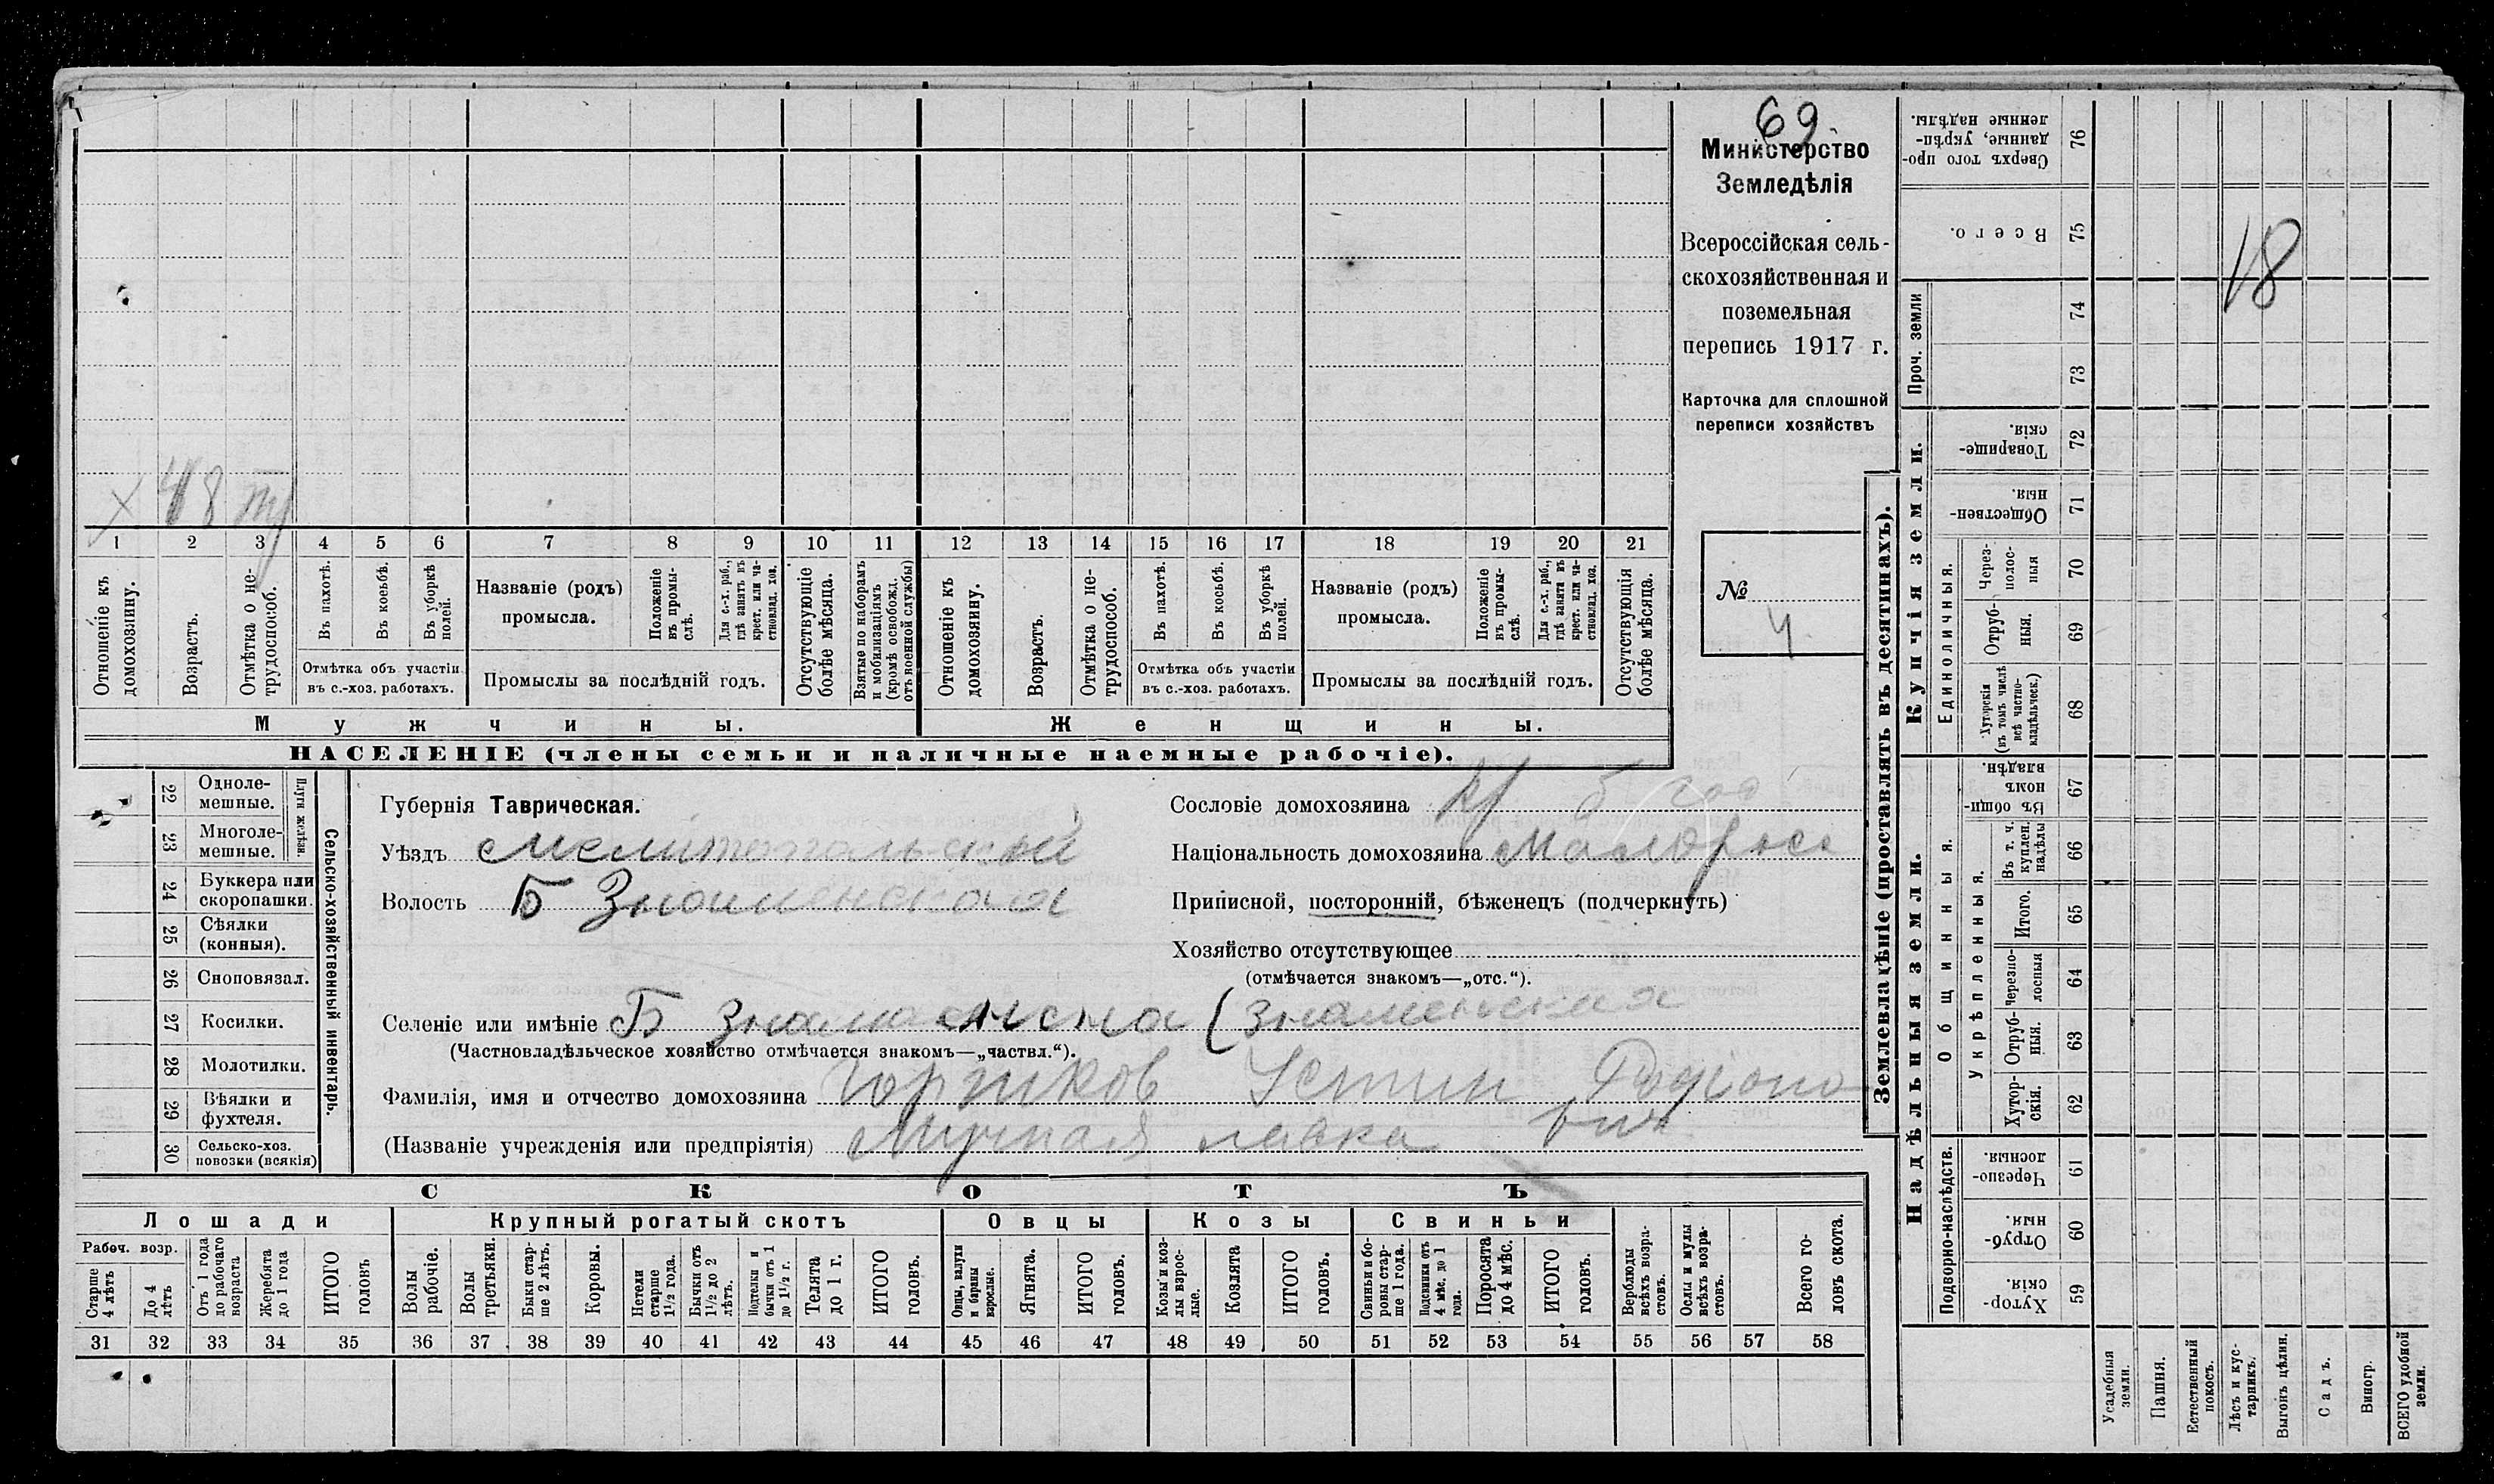 69
Министерство
Земледѣлія
Всероссійская сель-
скохозяйственная и
поземельная
перепись 1917 г.
Карточка для сплошной
переписи хозяйствъ
№
4
18
х 48
1 2 3 4 5 6 7 8 9 10 11 12 13 14 15 16 17 18 19 20 21
Отношеніе къ домохозяину.
Возрастъ.
Отмѣтка о не-трудоспособ.
Въ пахотѣ.
Въ косьбѣ.
Въ уборкѣ полей.
Отмѣтка объ участіи въ с.-хоз. работахъ.
Названіе (родъ) промысла.
Положеніе въ промы-слѣ.
Для с.-х. раб., гдѣ занятъ въ крест. или ча-стновлад. хоз.
Промыслы за послѣдній годъ.
Отсутствующіе болѣе мѣсяца.
Взятые по наборамъ и мобилизаціямъ (кромѣ освобожд. отъ военной службы)
Отношеніе къ домохозяину.
Возрастъ.
Отмѣтка о не-трудоспособ.
Въ пахотѣ.
Въ косьбѣ.
Въ уборкѣ полей.
Отмѣтка объ участіи въ с.-хоз. работахъ.
Названіе (родъ) промысла.
Положеніе въ промы-слѣ.
Для с.-х. раб., гдѣ занята въ крест. или ча-стновлад. хоз.
Промыслы за послѣдній годъ.
Отсутствующія болѣе мѣсяца.
Мужчины. Женщины.
НАСЕЛЕНІЕ (члены семьи и наличные наемные рабочіе).
22 Одноле-мешные.
23 Многоле-мешные.
Плуги желѣзн.
24 Буккера или скоропашки.
25 Сѣялки (конныя).
26 Сноповязал.
27 Косилки.
28 Молотилки.
29 Вѣялки и фухтеля.
30 Сельско-хоз. повозки (всякія)
Сельско-хозяйственный инвентарь.
Губернія Таврическая.
Уѣздъ Мелитопольский
Волость Б Знаменская
Сословіе домохозяина кр
Національность домохозяина Малорос
Приписной, посторонній, бѣженецъ (подчеркнуть)
Хозяйство отсутствующее
(отмѣчается знакомъ—„отс.“).
Селеніе или имѣніе Б Знаменска (Знаменская
(Частновладѣльческое хозяйство отмѣчается знакомъ—„частвл.“).
Фамилія, имя и отчество домохозяина Горшков Устин Родионо
вич
(Названіе учрежденія или предпріятія) Мучная лавка
СКОТЪ
Лошади Крупный рогатый скотъ Овцы Козы Свиньи
Рабоч. возр.
Старше 4 лѣтъ
До 4 лѣтъ
Отъ 1 года до рабочаго возраста
Жеребята до 1 года
ИТОГО головъ
Волы рабочіе.
Волы третьяки.
Быки стар-ше 2 лѣтъ.
Коровы.
Нетели старше 1½ года.
Бычки отъ 1½ до 2 лѣтъ.
Подтелки и бычки отъ 1 до 1½ г.
Телята до 1 г.
ИТОГО головъ.
Овцы, валухи и бараны взрослые.
Ягнята.
ИТОГО головъ.
Козы и коз-лы взрос-лые.
Козлята
ИТОГО головъ.
Свиньи и бо-ровы стар-ше 1 года.
Подсвинки отъ 4 мѣс. до 1 года.
Поросята до 4 мѣс.
ИТОГО головъ.
Верблюды всѣхъ возра-стовъ.
Ослы и мулы всѣхъ возра-стовъ.
Всего го-ловъ скота.
31 32 33 34 35 36 37 38 39 40 41 42 43 44 45 46 47 48 49 50 51 52 53 54 55 56 57 58
Землевладѣніе (проставлять въ десятинахъ).
Купчія земли.
Надѣльныя земли.
Сверхъ того про-данные, укрѣп-ленные надѣлы. 76
Всего. 75
Проч. земли 74
73
Товарище-скія. 72
Обществен-ныя. 71
Единоличныя.
Через-полос-ныя 70
Отруб-ныя. 69
Хуторскія (въ томъ числѣ всѣ частно-владѣльческ.) 68
Общинныя.
Въ общи-нномъ владѣн. 67
Укрѣпленныя.
Въ т. ч. куплен. надѣлы 66
Итого. 65
Черезпо-лосныя 64
Отруб-ныя. 63
Хутор-скія. 62
Подворно-наслѣдств.
Черезпо-лосныя. 61
Отруб-ныя. 60
Хутор-скія. 59
Усадебныя земли.
Пашня.
Естественный покосъ.
Лѣсъ и кус-тарникъ.
Выгонъ цѣлин.
Садъ.
Виногр.
ВСЕГО удобной земли.